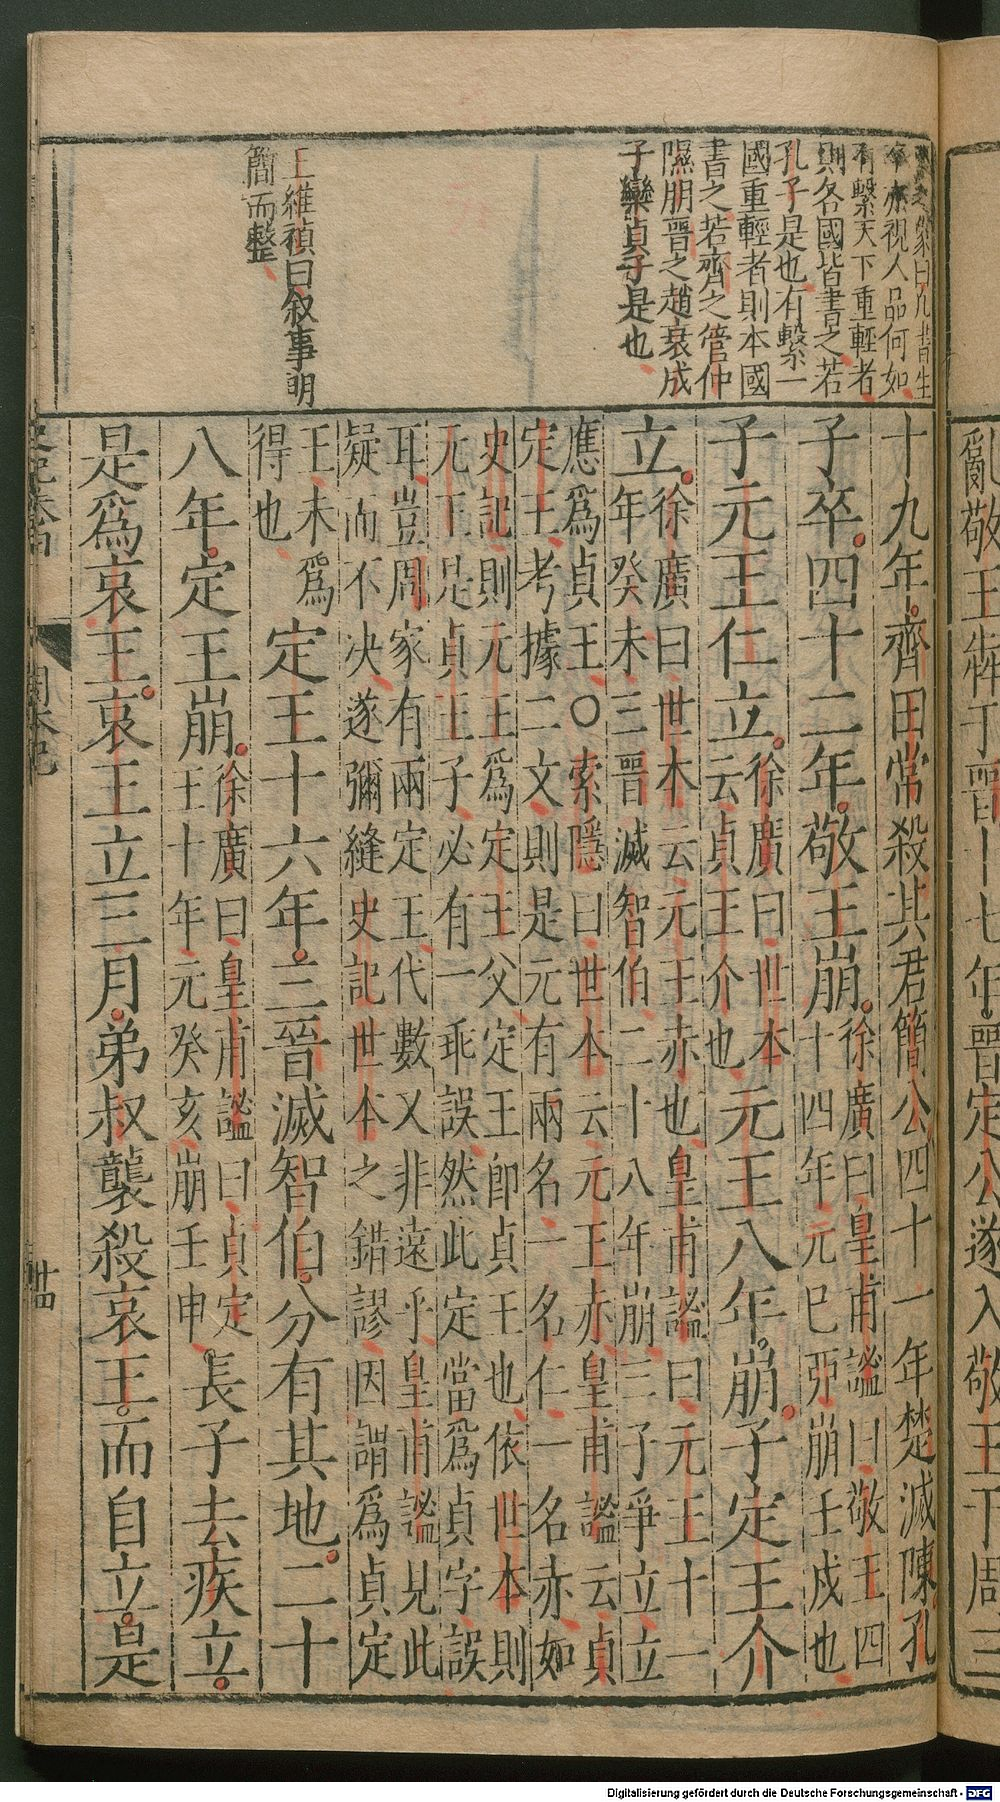 亂敬王犇于晉十七年晉定公遂入敬王于周三
象曰凡書生
卒亦視人品何如
有繫天下重輕者
則各國皆書之若
孔子是也有繫一
國重輕者則本國
書之若齊之管仲
隰朋晉之趙衰成
子欒貞子是也
王維禎曰叙事明
簡而整
十九年齊田常殺其君簡公四十一年楚滅陳孔
子卒四十二年敬王崩
徐廣曰皇甫謐曰敬王四
十四年元巳卯崩壬戌也
子元王仁立
徐廣曰世本
云貞王介也
元王八年崩子定王介
立
徐廣曰世本云元王赤也皇甫謐曰元王十一
年癸未三晉滅智伯二十八年崩三子爭立立
應爲貞王○索隱曰世本云元王赤皇甫謐云貞
定王考據二文則是元有兩名一名仁一名赤如
史記則元王爲定王父定王即貞王也依世本則
元王是貞王子必有一乖誤然此定當爲貞字誤
耳豈周家有兩定王代數又非遠乎皇甫謐見此
疑而不決遂彌縫史記世本之錯謬因謂爲貞定
王未爲
得也
定王十六年三晉滅智伯分有其地二十
八年定王崩
徐廣曰皇甫謐曰貞定
王十年元癸亥崩壬申
長子去疾立
是爲哀王哀王立三月弟叔襲殺哀王而自立是
史記卷四 周本紀 廿四
Digitalisierung gefördert durch die Deutsche Forschungsgemeinschaft - DFG